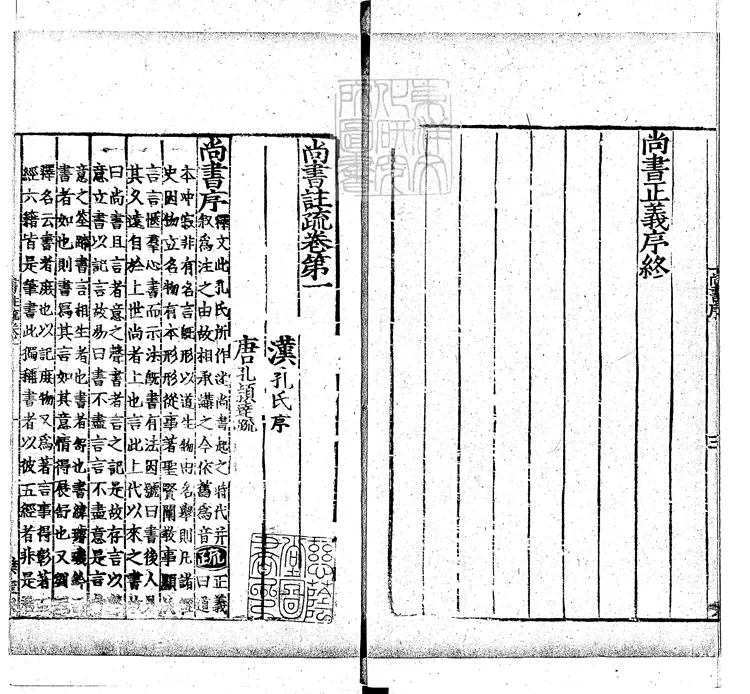 尚書正義序終
尚書註疏卷第一
漢孔氏序
唐孔穎達疏
尚書序
釋文此孔氏所作述尚書起之時代并
叙爲注之由故相承講之今依舊爲音
疏
正義
曰道
本冲寂非有名言旣形以道生物由名舉則凡諸
史因物立名物有本形形從事著聖賢闡教事顯
言言愜羣心書而示法旣書有法因號曰書後人見
其久遠自於上世尚者上也言此上代以來之書故
曰尚書且言者意之聲書者言之記是故存言以聲
意立書以記言故易曰書不盡言言不盡意是言者
意之筌蹄書言相生者也書者舒也書緯璿璣鈐
書者如也則書寫其言如其意情得展舒也又劉
釋名云書者庶也以記庶物又爲著言事得彰著
經六籍皆是筆書此獨稱書者以彼五經者非是